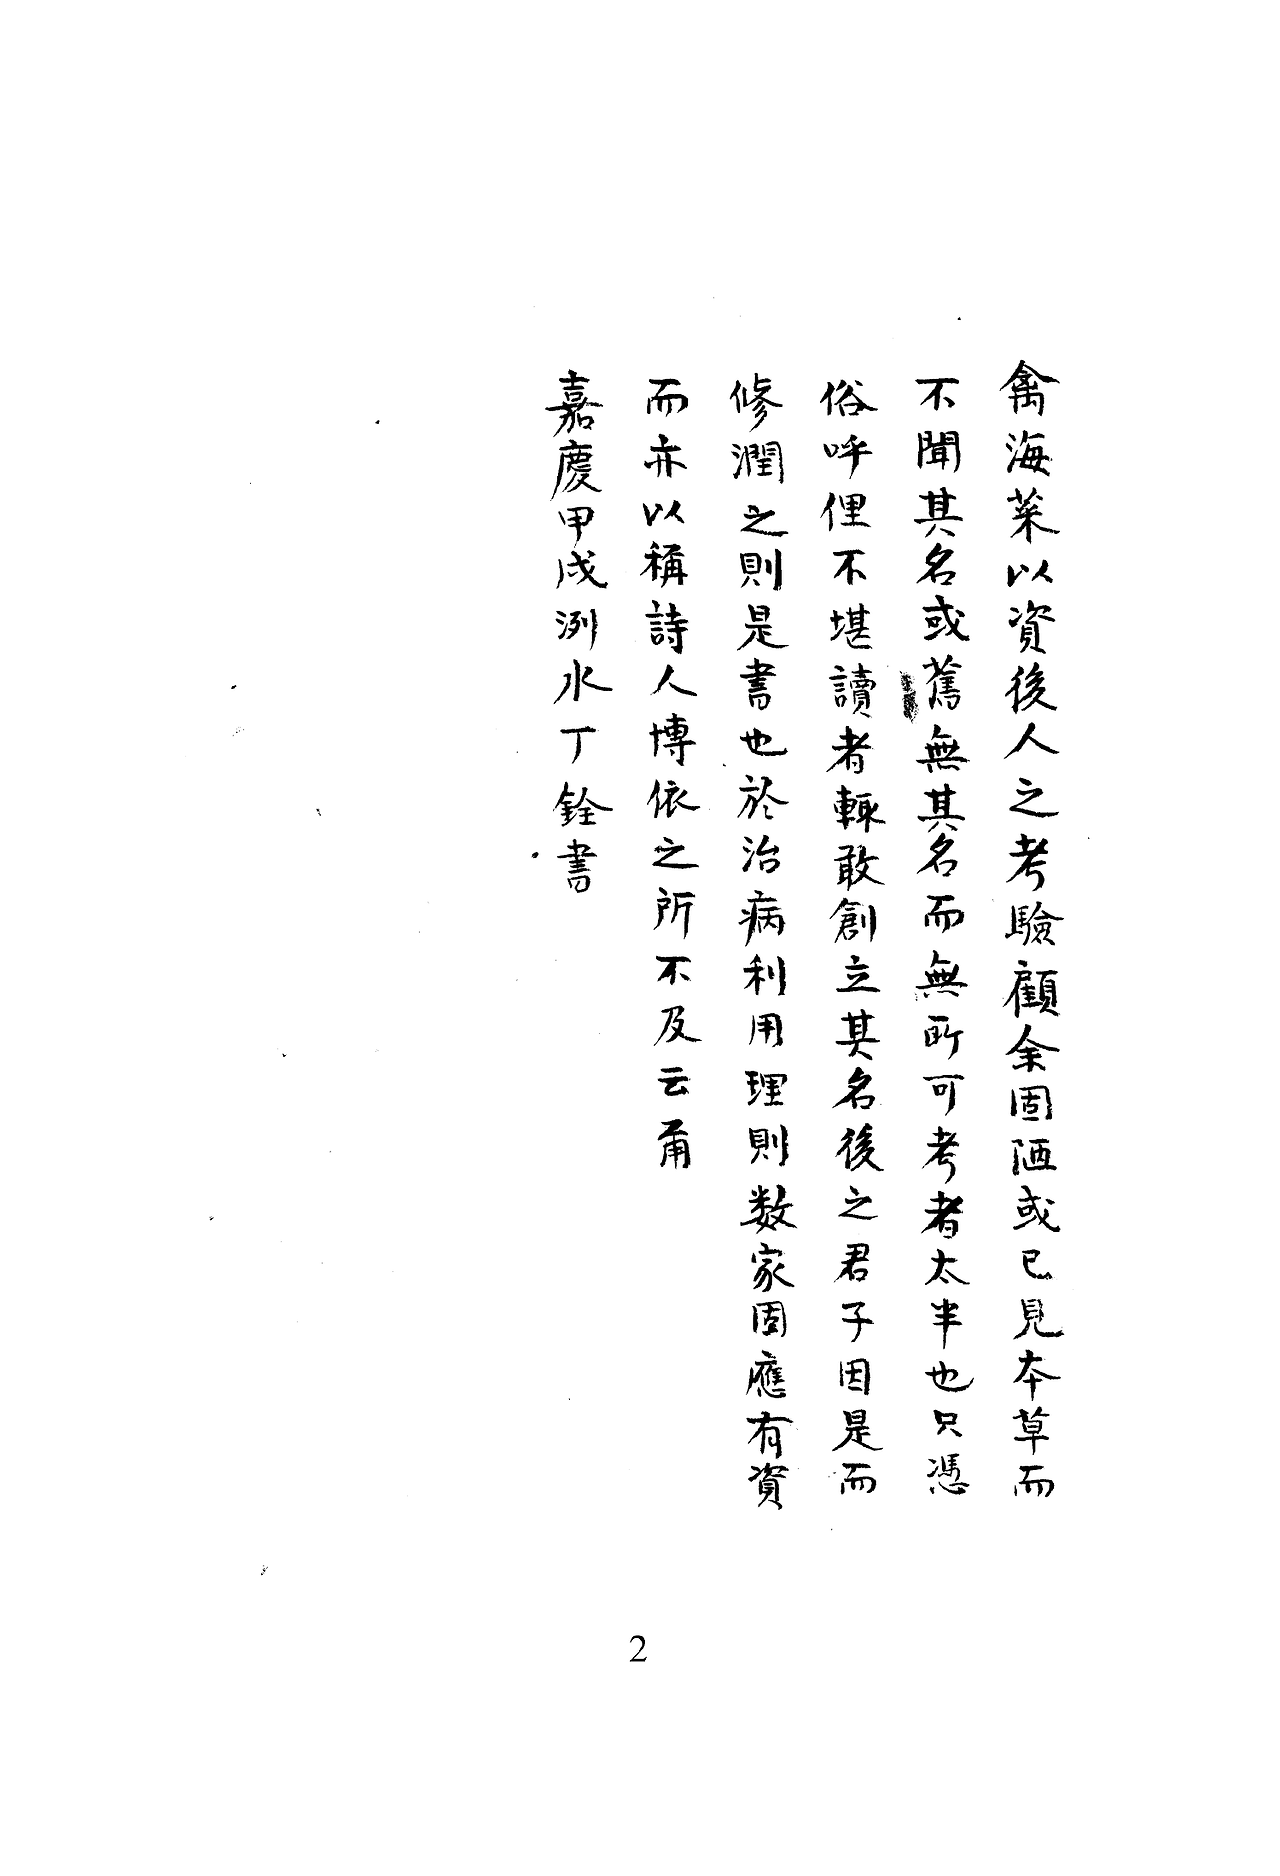 禽海菜以資後人之考驗顧余固陋或已見本草而
不聞其名或舊無其名而無所可考者太半也只憑
俗呼俚不堪讀者輙敢創立其名後之君子因是而
修潤之則是書也於治病利用理則数家固應有資
而亦以稱詩人博依之所不及云甭
嘉慶甲戌洌水丁銓書
2